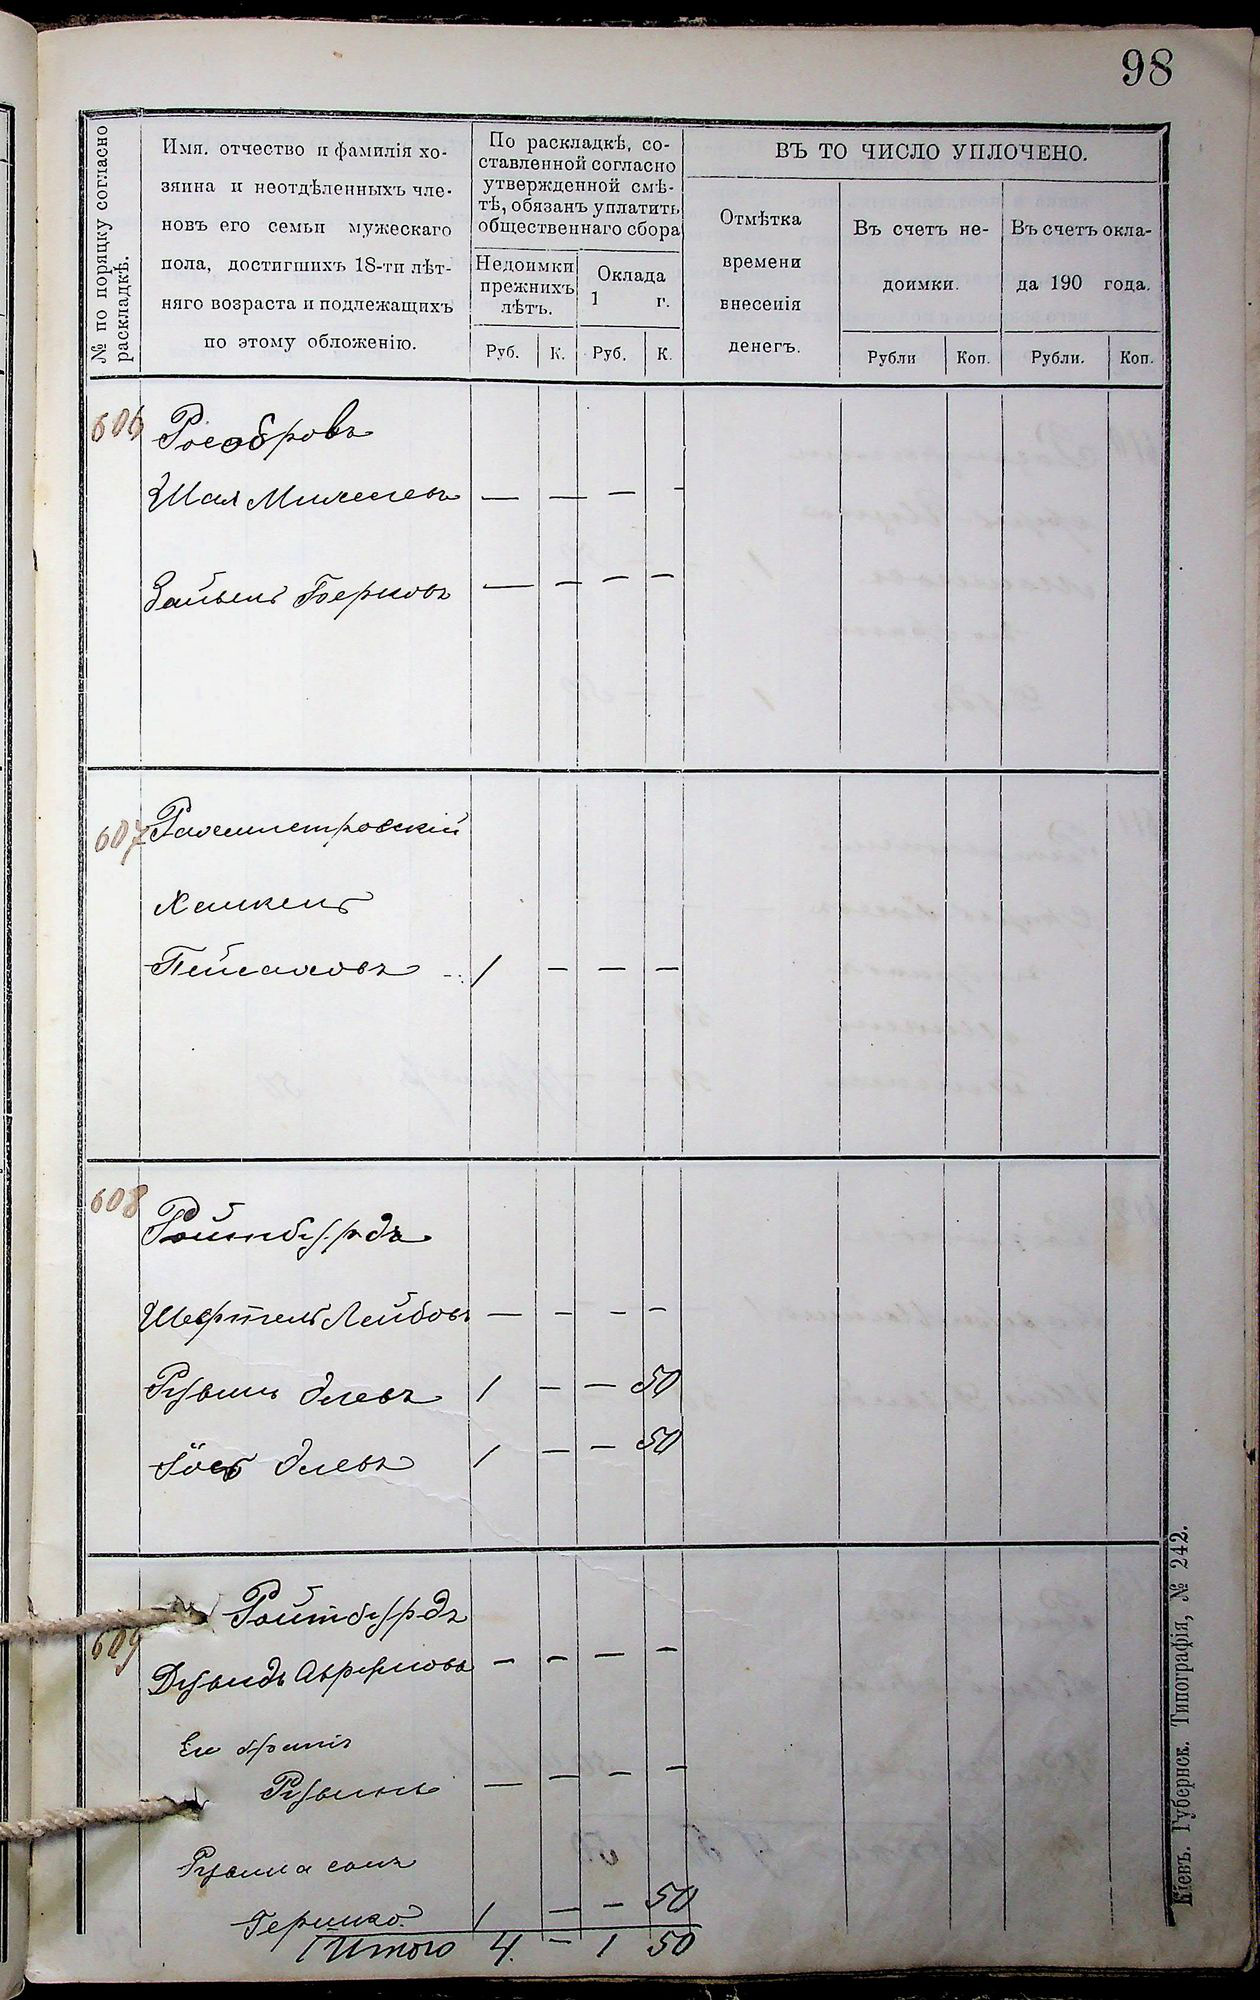 98
№ по порядку согласно раскладкѣ.
Имя, отчество и фамилія хо-
зяина и неотдѣленныхъ чле-
новъ его семьи мужескаго
пола, достигшихъ 18-ти лѣт-
няго возраста и подлежащихъ
по этому обложенію.
По раскладкѣ, со-
ставленной согласно
утвержденной смѣ-
тѣ, обязанъ уплатить
общественнаго сбора
Недоимки
прежнихъ
лѣтъ.
Оклада
1 г.
Руб. К. Руб. К.
ВЪ ТО ЧИСЛО УПЛОЧЕНО.
Отмѣтка
времени
внесенія
денегъ.
Въ счетъ не-
доимки.
Рубли Коп.
Въ счетъ окла-
да 190 года.
Рубли. Коп.
606
Шая — — — —
Зайвель Берковъ — — — —
607
Хаскель
Пейсаховъ 1 — — —
608 Ройтбурдъ
Шефтель Лейбовъ — — — —
Рувинъ Элевъ 1 — — 50
Іось Элевъ 1 — — 50
609 Ройтбурдъ
Дувидъ Аврумовъ — — — —
Его братъ
Рувинъ — — — —
Рувина сынъ
Гершко. 1 — — 50
Итого 4. — 1 50
Кіевъ. Губернск. Типографія, № 242.